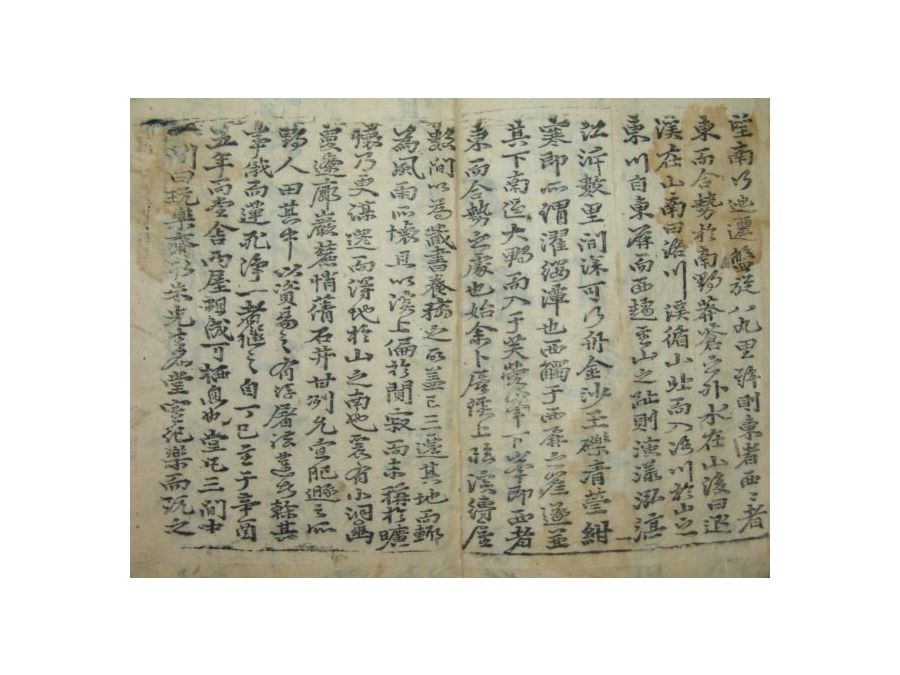 望南行迤邐盤旋八九里許則東者西々者
東而合勢於南野莽蒼之外水在山後曰退
溪在山南曰洛川溪循山北而入洛川於山之
東川自東屏而西趨至山之趾則演漾泓渟
沿泝數里間深可行舟金沙玉礫清瑩紺
寒即所謂濯纓潭也西觸于西屏之崖遂並
其下南過大野而入于芙蓉峯下峯即西者
東而合勢之處也始余卜居溪上臨溪縛屋
數間以為藏書養拙之所盖已三遷其地而輒
為風雨所壞且以溪上偏於闃寂而未稱於曠
懷乃更謀遷而得地於山之南也爰有小洞幽
夐遼廓巖麓悄蒨石井甘冽允宜肥遯之所
野人田其中以資易之有浮屠法蓮者幹其
事俄而蓮死淨一者繼之自丁巳至于辛酉
五年而堂舍兩屋粗成可栖息也堂凡三間中
一間曰玩樂齋取朱先生名堂室記樂而玩之